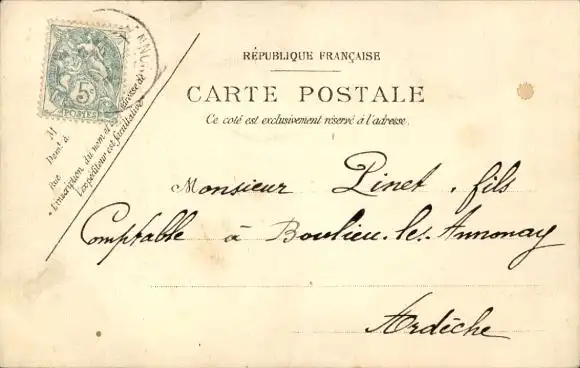 5c
POSTES
RÉPUBLIQUE FRANÇAISE
CARTE POSTALE
Ce coté est exclusivement réservé à l'adresse.
M
Demt à
Rue
L'inscription du nom et de l'adresse de
l'expéditeur est facultative
Monsieur Pinet, fils
Comptable à Boulieu-les-Annonay
Ardèche